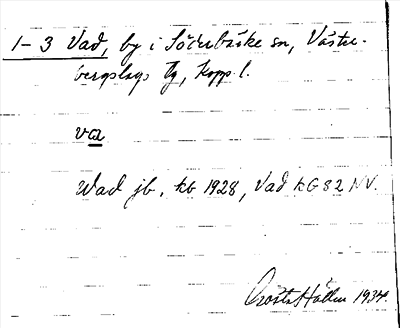 1-3 Vad, by i Söderbärke sn, Väster-
bergslags tg, Kopp. l.
va
Wad jb. kb 1928, Vad kG 82 NV.
Hallm 1934.